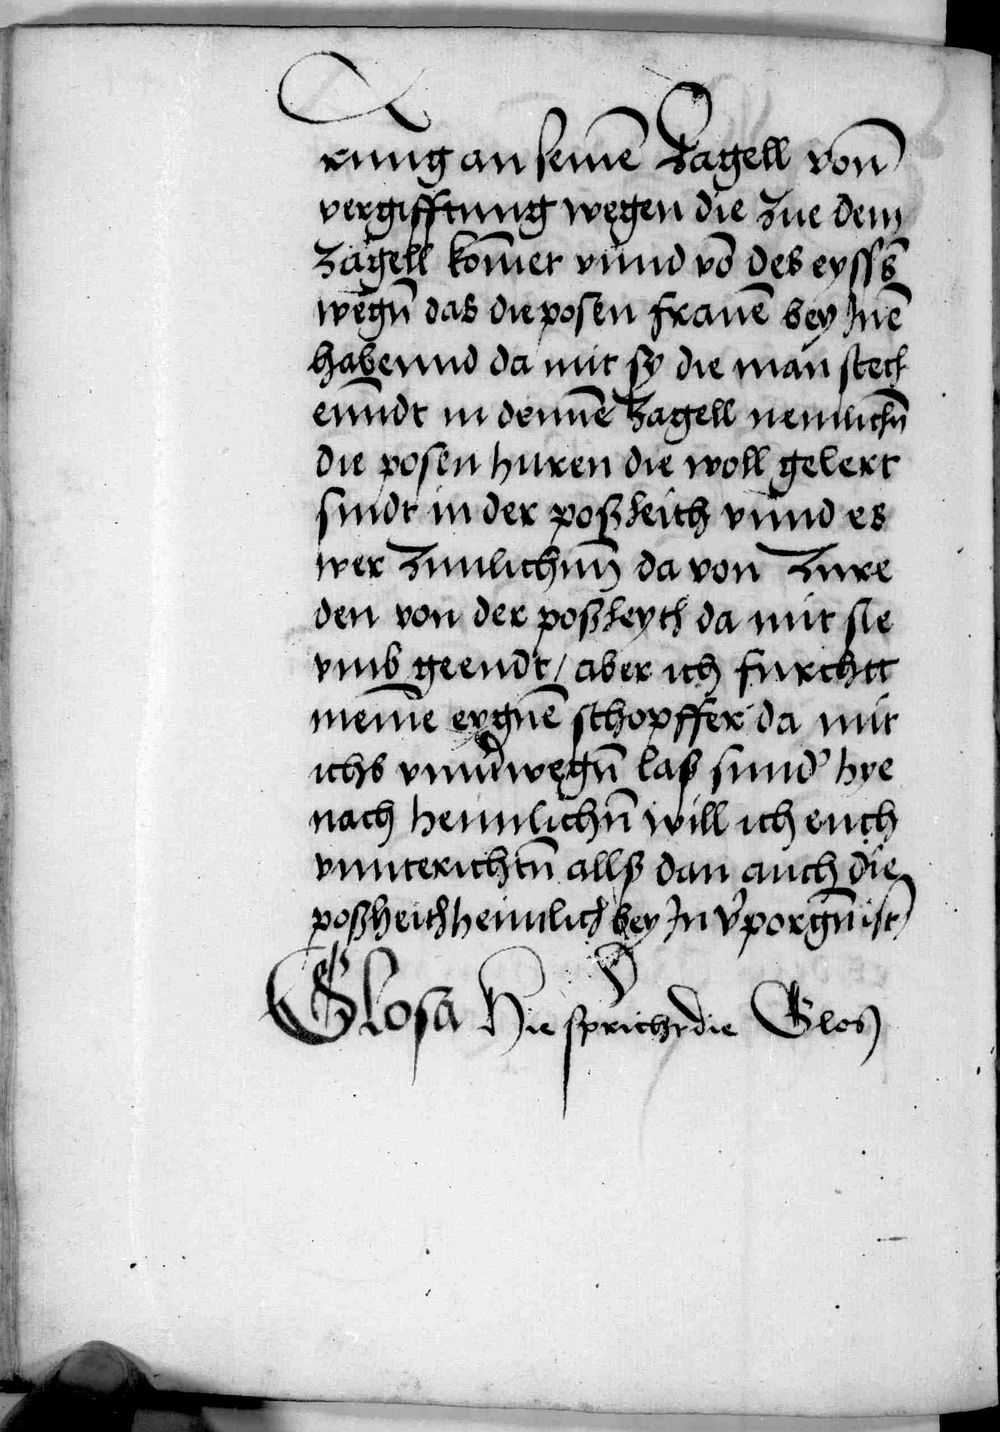 rung an seinē Zagell von̄
vergifftung wegen die zue dem
Zagell kom̄et vnnd vō des eyss̄s
wegn̄ das die posen frauē bey Inē
habennd da mit sy die man stech
enndt in dennē Zagell nemlichn̄
die posen huren die woll gelert
sindt in der poszleich vnnd es
wer zimlichn̄ da von zure
den von der poszleych da mit sie
vmb geendt / aber ich furchtt
meine eygnē schopffer da mit
ichs vnnd̄wegn̄ lasz sund̓ hye
nach heimlichn̄ will ich euch
vnnterichtn̄ allsz dan auch die
poszheith heimlich bey In v̓porgn̄ ist
Glosa Hie spricht die Glos